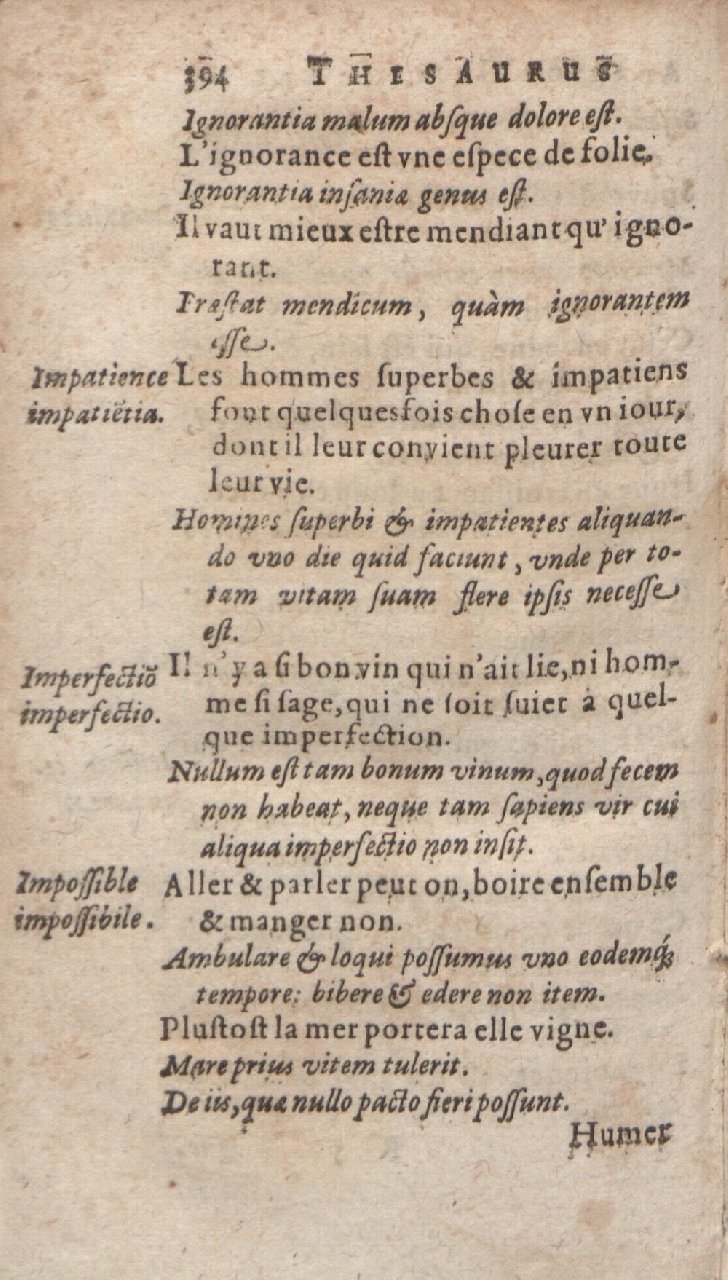 394 THESAURUS
Ignorantia malum abſque dolore eſt.
L'ignorance eſt vne eſpece de folie.
Ignorantia inſaniæ genus eſt.
Il vaut mieux eſtre mendiant qu'igno-
rant.
Præſtat mendicum, quàm ignorantem
eſſe.
Impatience Les hommes ſuperbes & impatiens
impatiẽtia. font quelquesfois choſe en vn iour,
dont il leur convient pleurer toute
leur vie.
Homines ſuperbi & impatientes aliquan-
do vno die quid faciunt, vnde per to-
tam vitam ſuam flere ipſis neceſſe
eſt.
Imperfectiõ Il n'y a ſi bon vin qui n'ait lie, ni hom-
imperfectio. me ſi ſage, qui ne ſoit ſuiet à quel-
que imperfection.
Nullum eſt tam bonum vinum, quod fecem
non habeat, neque tam ſapiens vir cui
aliqua imperfectio non inſit.
Impoſſible Aller & parler peut on, boire enſemble
impoſſibile. & manger non.
Ambulare & loqui poſſumus vno eodemq́;
tempore: bibere & edere non item.
Pluſtoſt la mer portera elle vigne.
Mare prius vitem tulerit.
De iis, quæ nullo pacto fieri poſſunt.
Humer